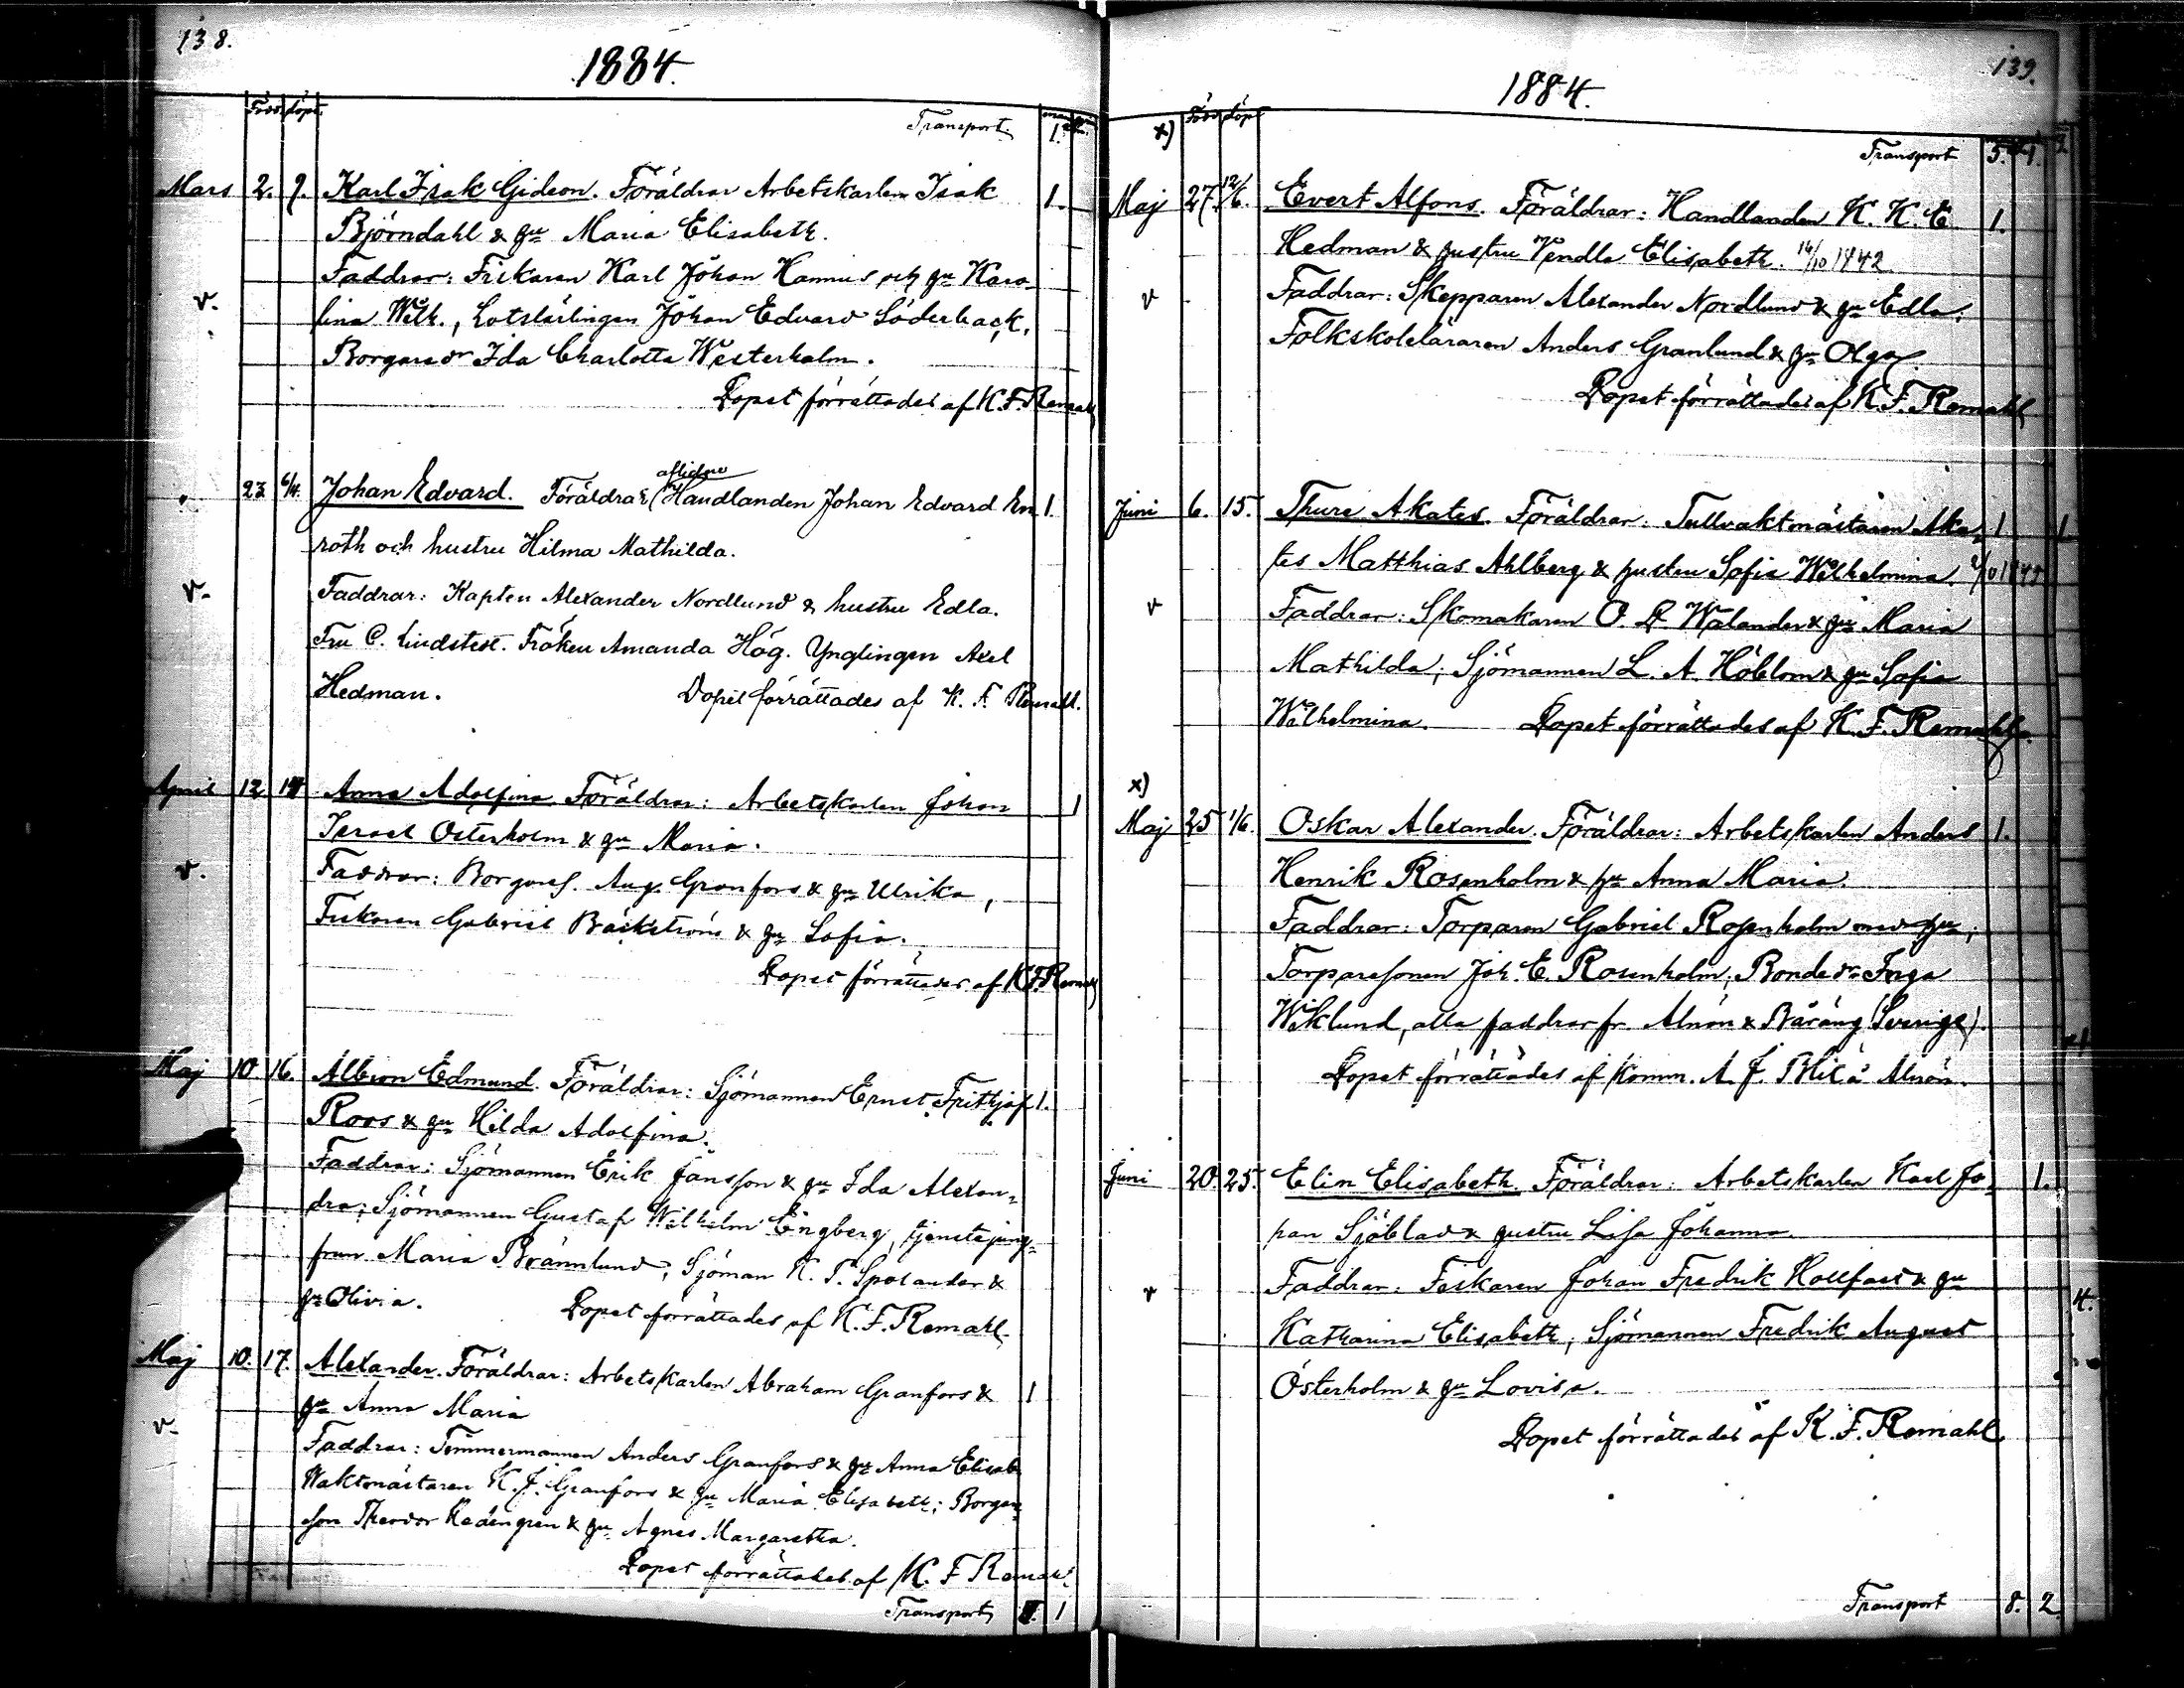 138.
1884.
Född döpt.
Transport. 1.
Mars 2. 9. Karl Isak Gideon. Föräldrar Arbetskarlen Isak 1.
Björndahl & hu Maria Elisabeth.
Faddrar: Fiskaren Karl Johan Hannus och hu Karo-
v. lina Wilh., Lotslärlingen Johan Edvard Söderback,
Borgaredr Ida Charlotta Westerholm.
Dopet förrättades af K. F. Remahl
aflidne
23. 6/4. Johan Edvard. Föräldrar: (Handlanden Johan Edvard En 1.
roth och hustru Hilma Mathilda.
v. Faddrar: Kapten Alexander Nordlund & hustru Edla.
Fru C. Lindstedt. Fröken Amanda Hög. Ynglingen Axel
Hedman. Dopet förrättades af K. F. Remahl.
April 12 Anna Adolfina. Föräldrar: Arbetskarlen Johan 1
Israel Österholm & hu Maria.
v. Faddrar: Borgares. Aug. Granfors & hu Ulrika,
Fiskaren Gabriel Bäckström & hu Sofia.
Dopet förrättades af K. F. Remahl
Maj 10. 16. Albion Edmund. Föräldrar: Sjömannen Ernst Frithjof 1.
Roos & hu Hilda Adolfina.
Faddrar: Sjömannen Erik Jansson & hu Ida Alexan-
dra; Sjömannen Gustaf Wilhelm Engberg, tjenstejung-
frun Maria Brännlund, Sjöman K. T. Spolander &
hu Olivia. Dopet förrättades af K. F. Remahl.
Maj 10. 17. Alexander. Föräldrar: Arbetskarlen Abraham Granfors & 1
v. hu Anna Maria
Faddrar: Timmermannen Anders Granfors & hu Anna Elisab.
Waktmästaren K. J. Granfors & hu Maria Elisabeth; Borgare-
son Theodor Hedengren & hu Agnes Margaretha.
Dopet förrättades af K. F. Remahl.
Transport 1
139.
1884.
x) Född döpt
Transport 5. 1.
Maj 27. 12/6. Evert Alfons. Föräldrar: Handlanden K. K. E. 1.
Hedman & hustru Vendla Elisabeth. 14/10 1842
v Faddrar: Skepparen Alexander Nordlund & hu Edla;
Folkskoleläraren Anders Granlund & hu Olga.
Dopet förrättades af K. F. Remahl
Juni 6. 15. Thure Akates. Föräldrar: Tullvaktmästaren Aka- 1. 1
tes Matthias Ahlberg & hustru Sofia Wilhelmina.
v Faddrar: Skomakaren O. D. Walander & hu Maria
Mathilda; Sjömannen L. A. Höblom & hu Sofia
Wilhelmina. Dopet förrättades af K. F. Remahl.
x)
Maj 25 1/6. Oskar Alexander. Föräldrar: Arbetskarlen Anders 1.
Henrik Rosenholm & hu Anna Maria.
Faddrar: Torparen Gabriel Rosenholm med hu;
Torparesonen Joh. E. Rosenholm; Bondedr Inga
Wiklund, alla faddrar fr. Alnön & Bäräng (Sverige).
Dopet förrättades af Komm. A. J. Blix å Alnön.
Juni 20. 25. Elin Elisabeth. Föräldrar: Arbetskarlen Karl Jo- 1.
han Sjöblad & hustru Lisa Johanna.
v Faddrar: Fiskaren Johan Fredrik Hollfast & hu 4.
Katharina Elisabeth; Sjömannen Fredrik August
Österholm & hu Lovisa.
Dopet förrättades af K. F. Remahl
Transport 8. 2.